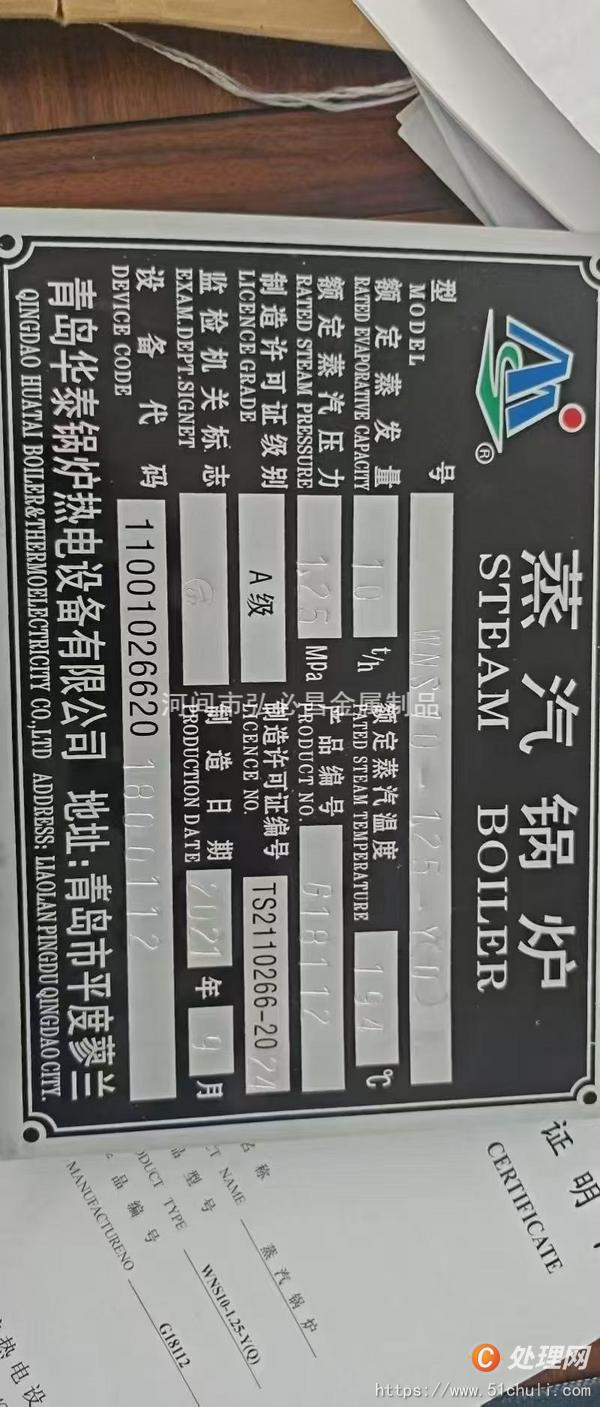 ®
蒸汽锅炉
STEAM BOILER
型号 WNS10-1.25-Y(Q)
MODEL
额定蒸发量 10 t/h 额定蒸汽温度 194 ℃
RATED EVAPORATIVE CAPACITY RATED STEAM TEMPERATURE
额定蒸汽压力 1.25 MPa 产品编号 G18112
RATED STEAM PRESSURE PRODUCT NO.
制造许可证级别 A级 制造许可证编号 TS2110266-2024
LICENCE GRADE LICENCE NO.
监检机关标志 制造日期 2021 年 9 月
EXAM.DEPT.SIGNET PRODUCTION DATE
设备代码 11001026620 1800112
DEVICE CODE
青岛华泰锅炉热电设备有限公司 地址:青岛市平度蓼兰
QINGDAO HUATAI BOILER&THERMOELECTRICITY CO.,LTD ADDRESS: LIAOLAN PINGDU QINGDAO CITY.
河间市弘必昌金属制品
证明
CERTIFICATE
名称 蒸汽锅炉
CT NAME
品型号 WNS10-1.25-Y(Q)
DUCT TYPE
品编号 G18112
MANUFACTURENO
热电设
C 处理网
https://www.51chuli.com